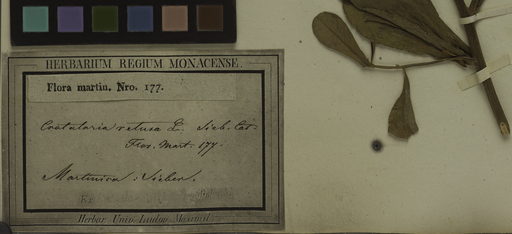 HERBARIUM REGIUM MONACENSE.
Flora martin. Nro. 177.
Crotalaria retusa L. Sieb. Cat.
Flor. Mart. 177.
Martinica: Sieber.
Herbar. Univ. Ludov. Maximil.